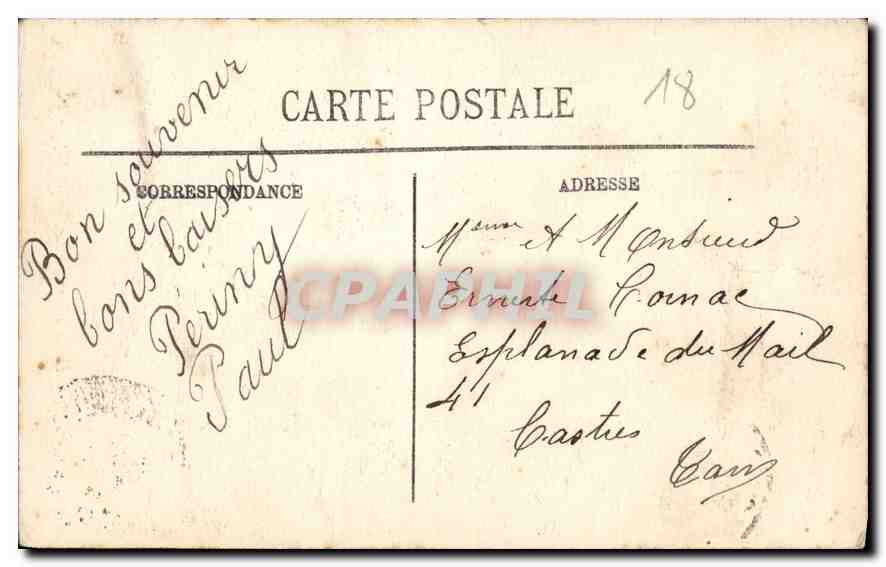 CARTE POSTALE
18
CORRESPONDANCE
Bon souvenir
et
bons baisers
Périny
Paul
ADRESSE
Mme et Monsieur
Erneste
Esplanade du Mail
41
Castres
Tarn
CPAPHIL